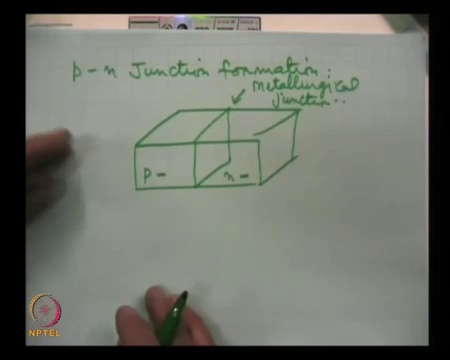 p-n Junction formation.
metallurgical
junction..
p-
n-
NPTEL